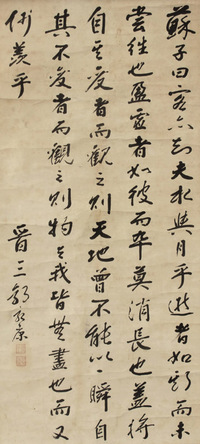 蘇子曰客亦知夫水與月乎逝者如斯而未
嘗往也盈虛者如彼而卒莫消長也蓋將
自其變者而觀之則天地曾不能以一瞬自
其不變者而觀之則物與我皆無盡也而又
何羨乎
晉三